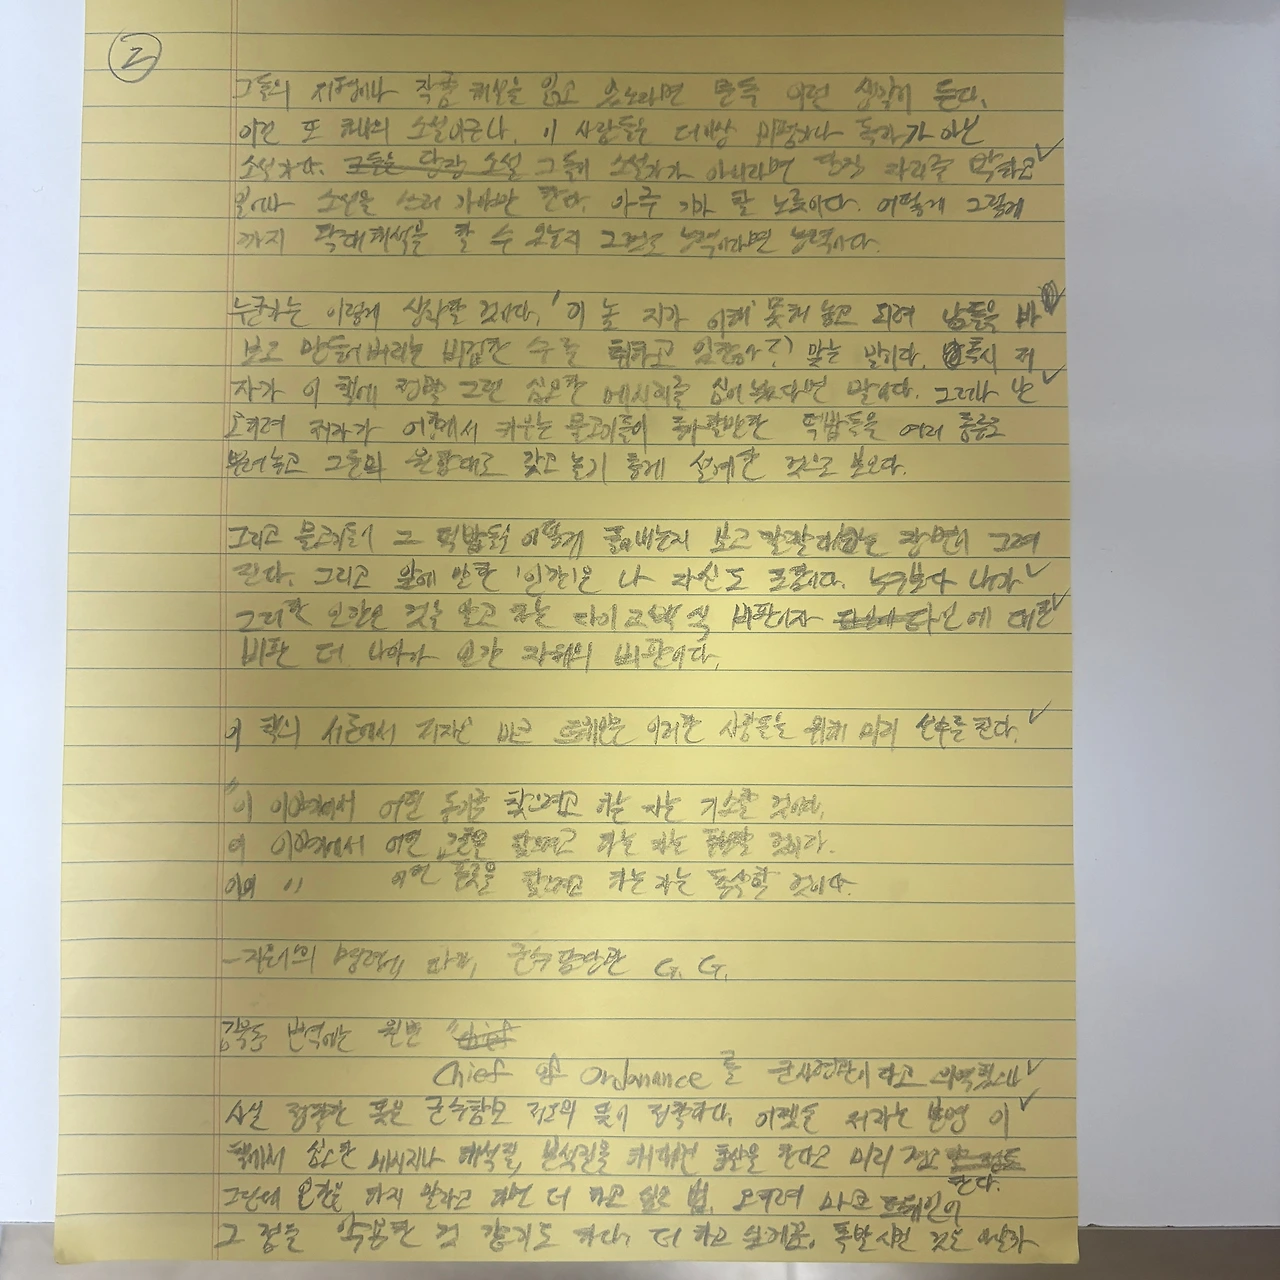 ②
그들의 서평이나 작품 해설을 읽고 있노라면 문득 이런 생각이 든다.
이건 또 하나의 소설이로구나. 이 사람들은 더이상 비평가나 독자가 아닌
소설가다. 그들은 당장 소설 그들이 소설가가 아니라면 당장 자리를 박차고
일어나 소설을 쓰러 가야만 한다. 아주 기가 찰 노릇이다. 어떻게 그렇게
까지 확대해석을 할 수 있는지 그것도 능력이라면 능력이다.
누군가는 이렇게 생각할 것이다, '이 놈 지가 이해 못해 놓고 되려 남들을 바
보로 만들어버리는 비겁한 수를 취하고 있잖아?' 맞는 말이다. 혹시 저
자가 이 책에 정말 그런 심오한 메시지를 심어 놨다면 말이다. 그러나 난
오히려 저자가 어항에서 키우는 물고기들이 좋아할만한 떡밥들을 여러 종류로
뿌려놓고 그들의 원함대로 갖고 놀기 좋게 설계한 것으로 보인다.
그리고 물고기들이 그 떡밥들을 어떻게 물어내는지 보고 깔깔대는 장면이 그려
진다. 그리고 앞에 말한 '인간'은 나 자신도 포함이다. 누구보다 내가
그러한 인간인 것을 알고 하는 자기고백식 비판이자 타인에 대한
비판 더 나아가 인간 자체의 비판이다.
이 책의 서론에서 저자인 마크 트웨인은 이러한 사람들을 위해 미리 선수를 친다.
"이 이야기에서 어떤 동기를 찾으려고 하는 자는 기소할 것이며,
이 이야기에서 어떤 교훈을 찾으려고 하는 자는 추방할 것이다.
이 이 〃 어떤 플롯을 찾으려고 하는 자는 총살할 것이다.
-저자의 명령에 따라, 군수담당관 G. G.
김욱동 번역에는 원문 "chief
Chief of Ordonance를 군사령관이라고 의역했으나
사실 정확한 뜻은 군수참모 정도의 뜻이 정확하다. 어쨌든 저자는 분명 이
책에서 심오한 메시지나 해석질, 분석질을 해대면 총살을 한다고 미리 경고
한다.
그런데 인간은 하지 말라고 하면 더 하고 싶은 법, 오히려 마크 트웨인이
그 점을 악용한 것 같기도 하다. 더 하고 싶게끔, 폭발시킨 것은 아닐까